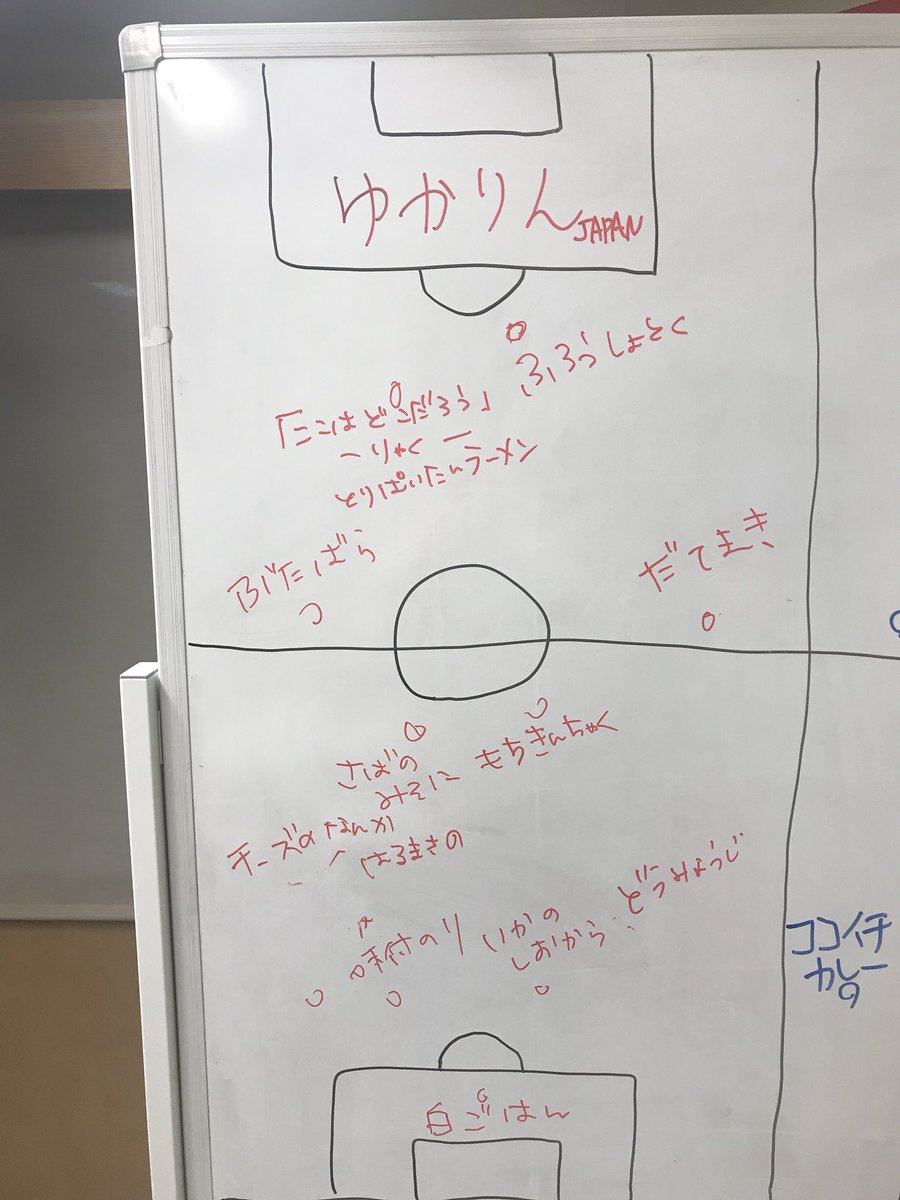 ゆかりん
JAPAN
ふろうしょとく
「ここはどこだろう」
〜りゃく〜
とりぱいたんラーメン
Bだばら
だてまき
さばの
みそに
もちきんちゃく
チーズのなんか
はるまきの
味付のり
いかの
しおから
どうみょうじ
ココイチ
カレー
の
白ごはん